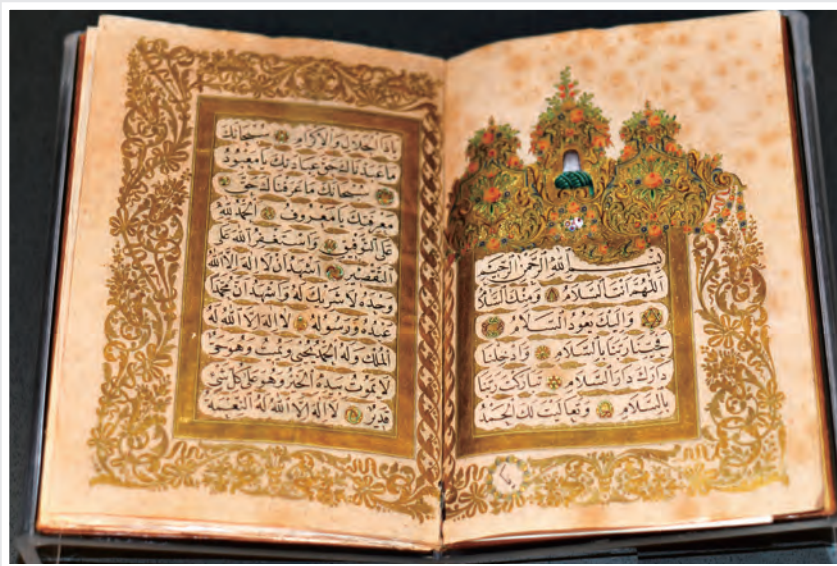 بِسْمِ اللّٰهِ الرَّحْمٰنِ الرَّحِيمِ
اَللّٰهُمَّ اَنْتَ السَّلَامُ وَمِنْكَ السَّلَامُ
وَاِلَيْكَ يَعُودُ السَّلَامُ
فَحَيِّنَا رَبَّنَا بِالسَّلَامِ وَاَدْخِلْنَا
دَارَكَ دَارَ السَّلَامِ تَبَارَكْتَ رَبَّنَا
بِالسَّلَامِ وَتَعَالَيْتَ لَكَ الْحَمْدُ
يَاذَا الْجَلَالِ وَالْاِكْرَامِ سُبْحَانَكَ
مَا عَبَدْنَاكَ حَقَّ عِبَادَتِكَ يَا مَعْبُودُ
سُبْحَانَكَ مَا عَرَفْنَاكَ حَقَّ
مَعْرِفَتِكَ يَا مَعْرُوفُ اَلْحَمْدُ لِلّٰهِ
عَلَى التَّوْفِيقِ وَاَسْتَغْفِرُ اللّٰهَ عَلَى
التَّقْصِيرِ اَشْهَدُ اَنْ لَا اِلٰهَ اِلَّا اللّٰهُ
وَحْدَهُ لَا شَرِيكَ لَهُ وَاَشْهَدُ اَنَّ مُحَمَّدًا
عَبْدُهُ وَرَسُولُهُ لَا اِلٰهَ اِلَّا اللّٰهُ لَهُ
الْمُلْكُ وَلَهُ الْحَمْدُ يُحْيِي وَيُمِيتُ وَهُوَ حَيٌّ
لَا يَمُوتُ بِيَدِهِ الْخَيْرُ وَهُوَ عَلٰى كُلِّ شَيْءٍ
قَدِيرٌ لَا اِلٰهَ اِلَّا اللّٰهُ لَهُ النِّعْمَةُ